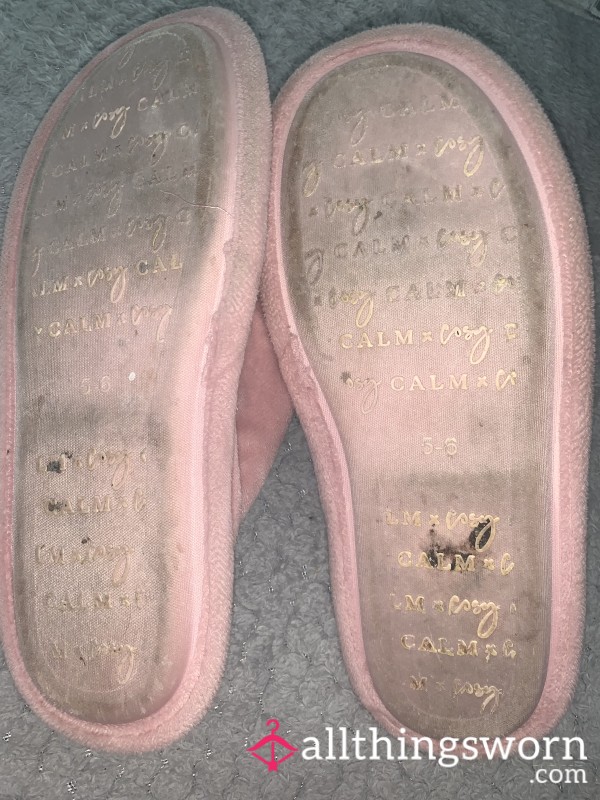 LM x cosy
M x cosy CALM
CALM x cosy C
x cosy CALM
y CALM x cosy C
LM x cosy CAL
x CALM x cosy
5-6
x cosy
CALM x c
M x cosy
CALM x
M cosy
cosy CALM
y CALM x cosy
x cosy CALM x c
y CALM x cosy C
x cosy CALM x co
CALM x cosy C
osy CALM x co
5-6
LM x cosy
CALM x c
LM x cosy
CALM x c
M x cosy
allthingsworn
.com